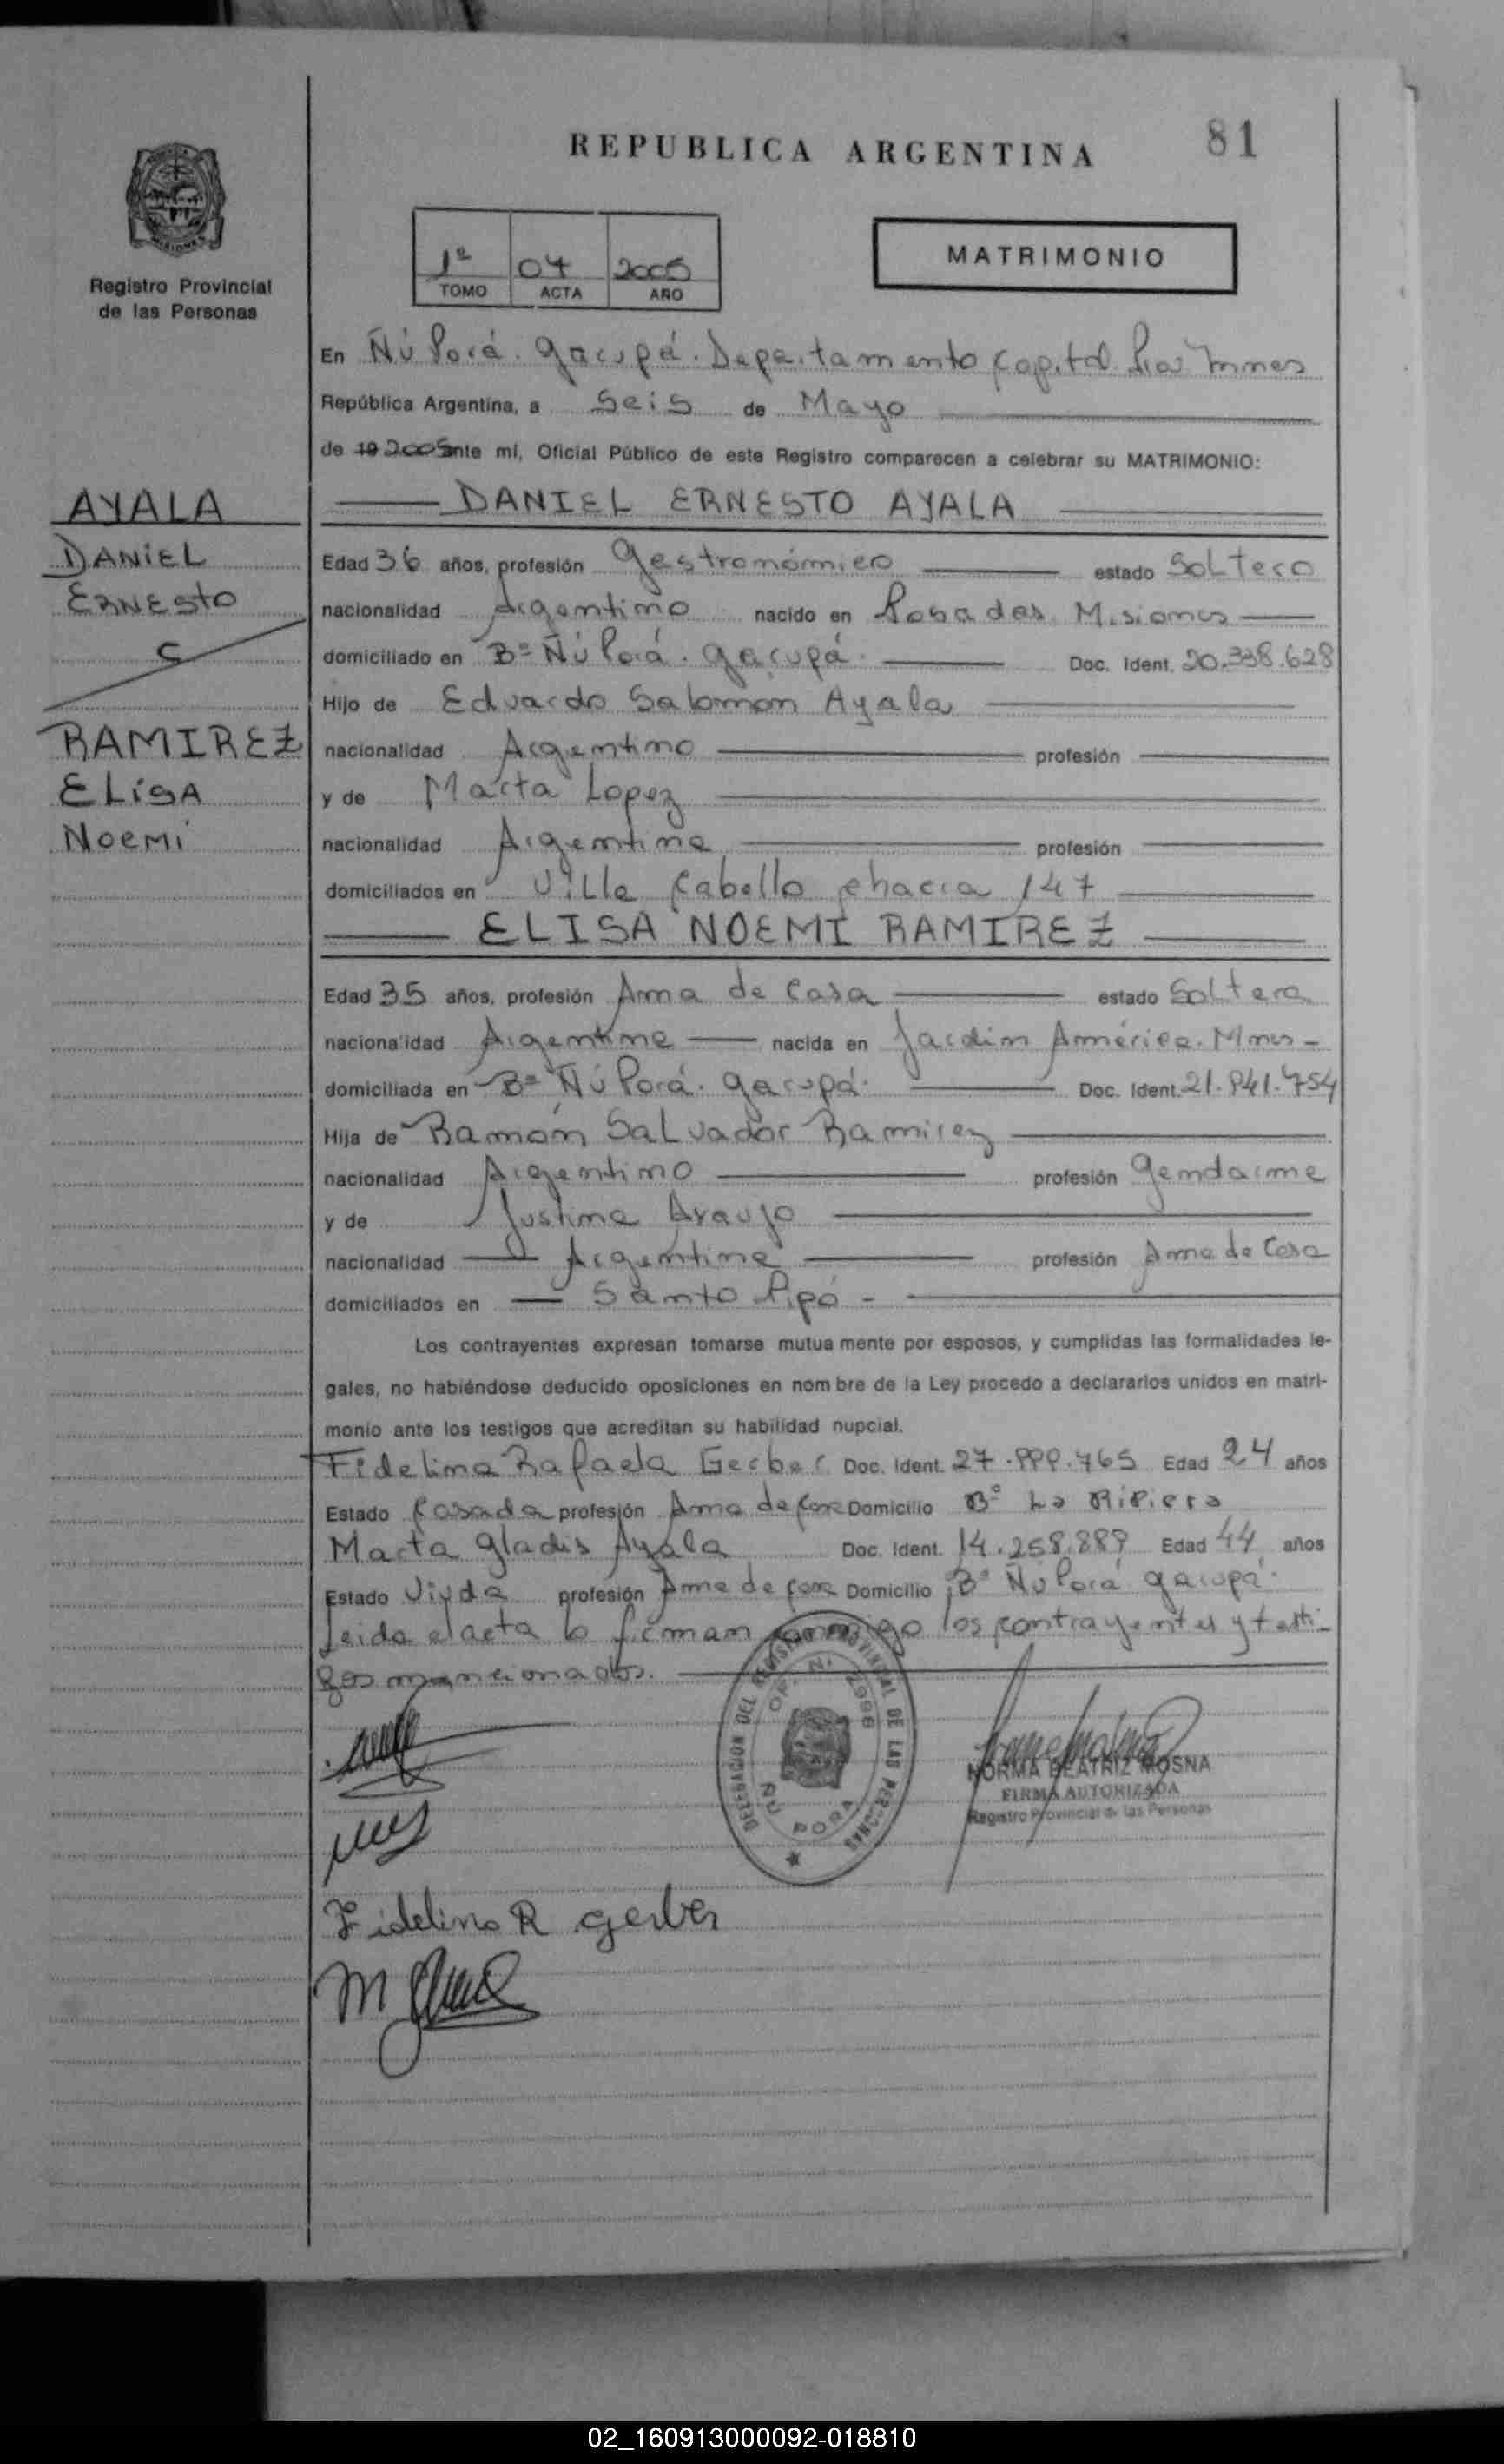 REPUBLICA ARGENTINA
81
MISIONES
Registro Provincial
de las Personas
1º 04 2005
TOMO ACTA AÑO
MATRIMONIO
En Ñú Porá. Garupá. Departamento Capital. Pcia Mnes
República Argentina, a Seis de Mayo
de 19 2005 ante mí, Oficial Público de este Registro comparecen a celebrar su MATRIMONIO:
AYALA
DANIEL
ERNESTO
C
RAMIREZ
ELISA
NOEMI
DANIEL ERNESTO AYALA
Edad 36 años, profesión Gastronómico estado Soltero
nacionalidad Argentino nacido en Posadas Misiones
domiciliado en Bº Ñú Porá. Garupá. Doc. Ident. 20.338.628
Hijo de Eduardo Salomon Ayala
nacionalidad Argentino profesión
y de Marta Lopez
nacionalidad Argentina profesión
domiciliados en Villa Cabello chacra 147
ELISA NOEMI RAMIREZ
Edad 35 años, profesión Ama de Casa estado Soltera
nacionalidad Argentina nacida en Jardin América. Mnes -
domiciliada en Bº Ñú Porá. Garupá. Doc. Ident. 21.841.754
Hija de Ramón Salvador Ramirez
nacionalidad Argentino profesión Gendarme
y de Justina Araujo
nacionalidad Argentina profesión Ama de Casa
domiciliados en Santo Pipó -
Los contrayentes expresan tomarse mutua mente por esposos, y cumplidas las formalidades le-
gales, no habiéndose deducido oposiciones en nom bre de la Ley procedo a declararlos unidos en matri-
monio ante los testigos que acreditan su habilidad nupcial.
Fidelina Rafaela Gerber Doc. Ident. 27.999.765 Edad 24 años
Estado Casada profesión Ama de Casa Domicilio Bº La Ribiera
Marta Gladis Ayala Doc. Ident. 14.258.889 Edad 44 años
Estado Viuda profesión Ama de Casa Domicilio Bº Ñú Porá Garupá.
Leida el acta lo firman conmigo los contrayentes y testi-
gos mencionados.
DELEGACION DEL REGISTRO PROVINCIAL DE LAS PERSONAS
OF. Nº 2996
ÑU PORA
NORMA BEATRIZ MOSNA
FIRMA AUTORIZADA
Registro Provincial de las Personas
Fidelina R Gerber
02_160913000092-018810